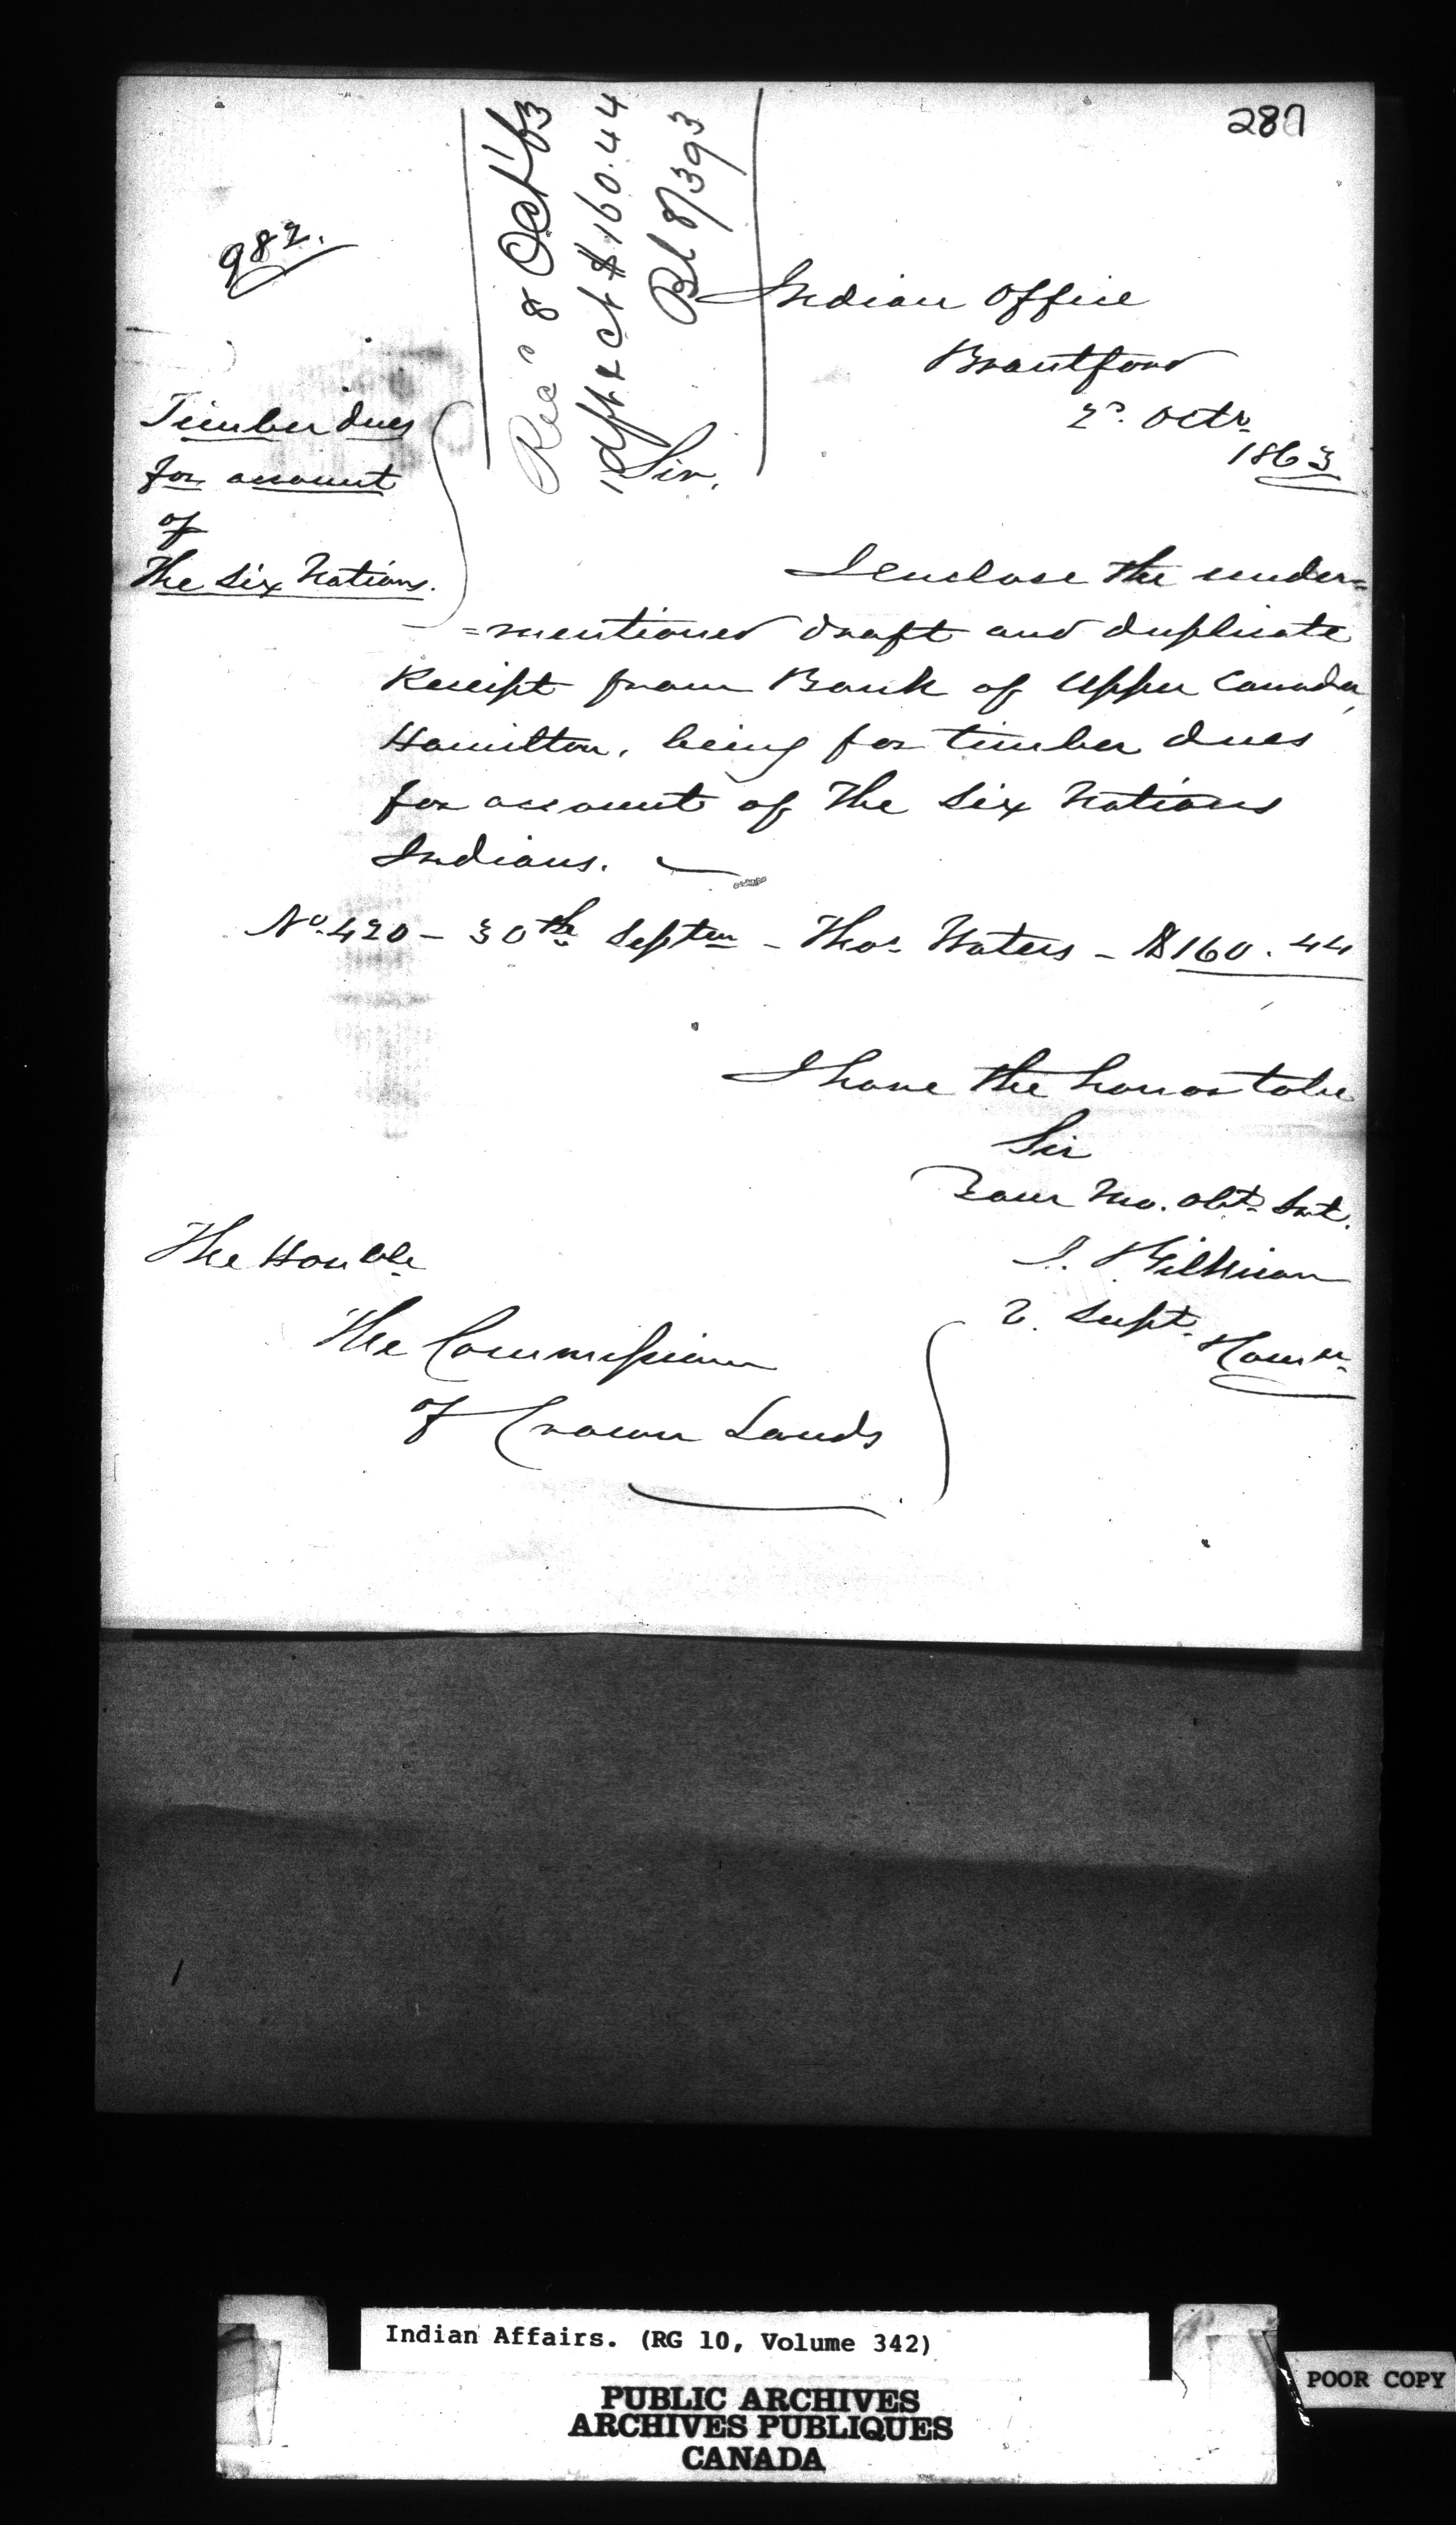 287
982.
Recd 8 Oct/63
1 dft & ct $160.44
Bl 8/393
Indian Office
Brantford
2d. Octr.
1863
Timber dues
for account
of
The Six Nations.
Sir,
I enclose the under=
=mentioned draft and duplicate
Receipt from Bank of Upper Canada,
Hamilton, being for timber dues
for account of The Six Nations
Indians. —
No. 420 – 30th Septem – Thos. Waters – $160.44
I have the honor to be
Sir
Your Mo. Obt. Svt.
J. Gilkison
V. Supt.
The Honble
The Commissioner
of Crown Lands
Indian Affairs. (RG 10, Volume 342)
PUBLIC ARCHIVES
ARCHIVES PUBLIQUES
CANADA
POOR COPY